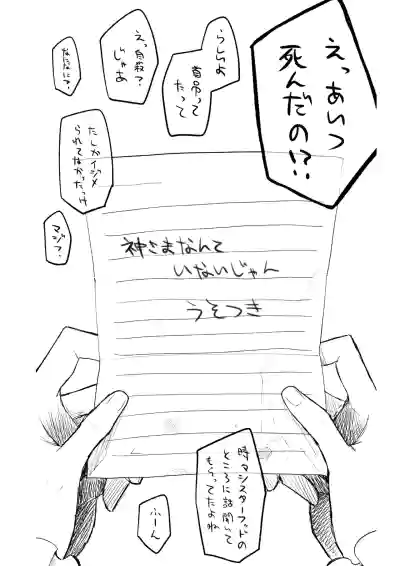 えっあいつ
死んだの!?
うしいよ
首吊って
たって
えっ自殺?
じゃあ
なになに?
たしかイジメ
られてなかったっけ
マジ?
神さまなんて
いないじゃん
うそつき
時々シスターフッドの
ところに話聞いて
もらってたよね
ふーん